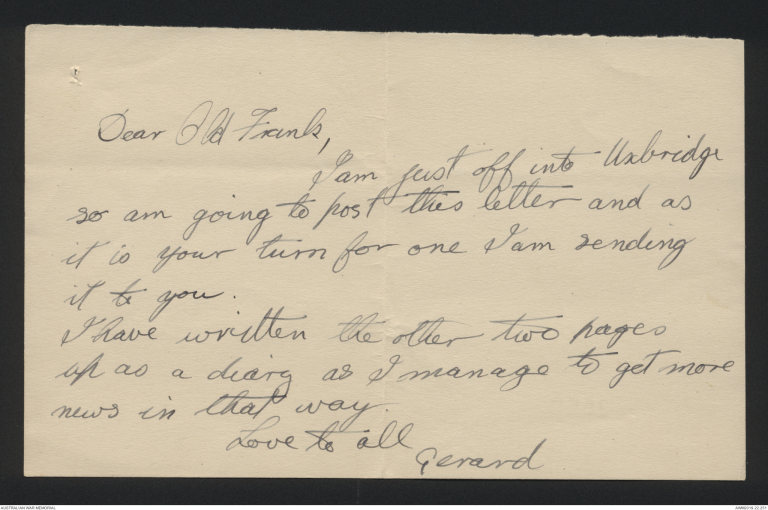 Dear Old Frank,
I am just off into Uxbridge
so am going to post this letter and as
it is your turn for one I am sending
it to you.
I have written the other two pages
up as a diary as I manage to get more
news in that way.
Love to all
Gerard
AUSTRALIAN WAR MEMORIAL